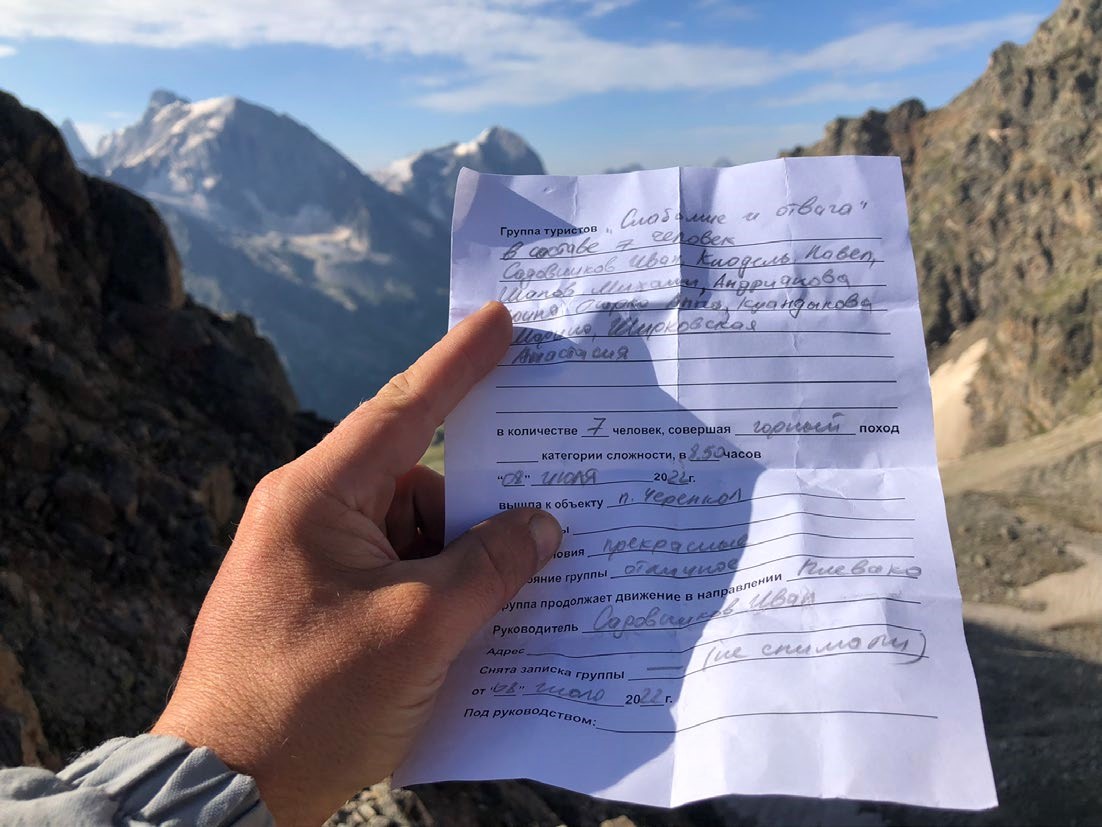 Группа туристов „Слабоумие и отвага"
в составе 7 человек
Садовшиков Иван Кнодель Павел,
Шапов Михаил, Андриякова
Анна, Куандыкова
Марина, Ширковская
Анастасия
в количестве 7 человек, совершая горный поход
категории сложности, в 8.50 часов
"08" июля 2022г.
вышла к объекту п. Черенкол
ы
овия прекрасные
ояние группы отличное
руппа продолжает движение в направлении Плевако
Руководитель Садовшиков Иван
Адрес
Снята записка группы — (не снимали)
от "08" июля 2022 г.
Под руководством: